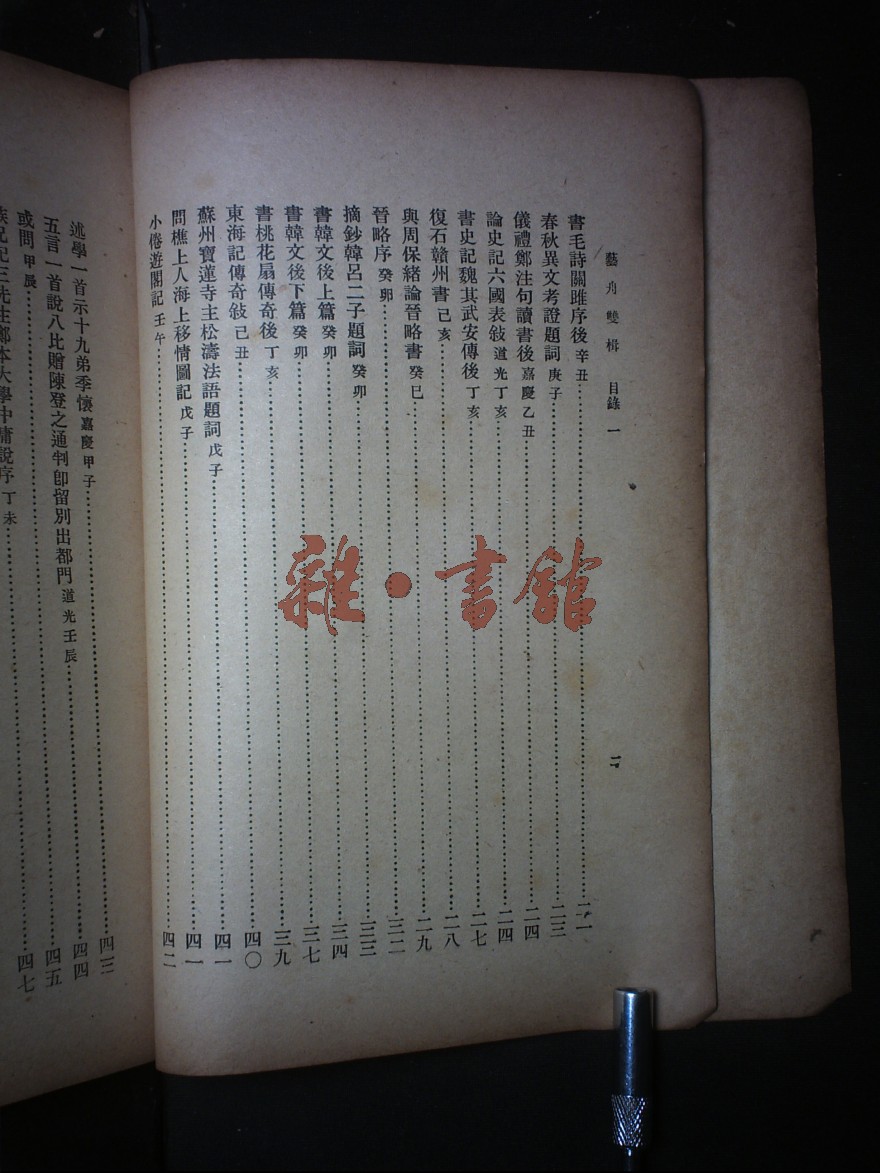 藝舟雙楫 目錄一 二
書毛詩關雎序後 辛丑……二一
春秋異文考證題詞 庚子……二三
儀禮鄭注句讀書後 嘉慶乙丑……二四
論史記六國表敍 道光丁亥……二四
書史記魏其武安傳後 丁亥……二七
復石贛州書 己亥……二八
與周保緒論晉略書 癸巳……二九
晉略序 癸卯……三二
摘鈔韓呂二子題詞 癸卯……三三
書韓文後上篇 癸卯……三四
書韓文後下篇 癸卯……三七
書桃花扇傳奇後 丁亥……三九
東海記傳奇敍 己丑……四〇
蘇州寶蓮寺主松濤法語題詞 戊子……四一
問樵上人海上移情圖記 戊子……四一
小倦遊閣記 壬午……四二
述學一首示十九弟季懷 嘉慶甲子……四三
五言一首說八比贈陳登之通判卽留別出都門 道光壬辰……四四
或問 甲辰……四五
族兄紀三先生鄭本大學中庸說序 丁未……四七
雜·書館